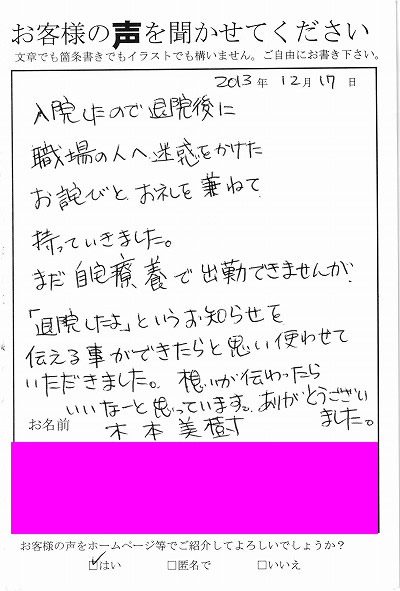 お客様の声を聞かせてください
文章でも箇条書きでもイラストでも構いません。ご自由にお書き下さい。
2013年 12月 17日
入院したので退院後に
職場の人へ迷惑をかけた
お詫びとお礼を兼ねて
持っていきました。
まだ自宅療養で出勤できませんが
「退院したよ」というお知らせを
伝える事ができたらと思い使わせて
いただきました。想いが伝わったら
いいなーと思っています。ありがとうござい
ました。
お名前 木本美樹
お客様の声をホームページ等でご紹介してよろしいでしょうか？
☑はい □匿名で □いいえ